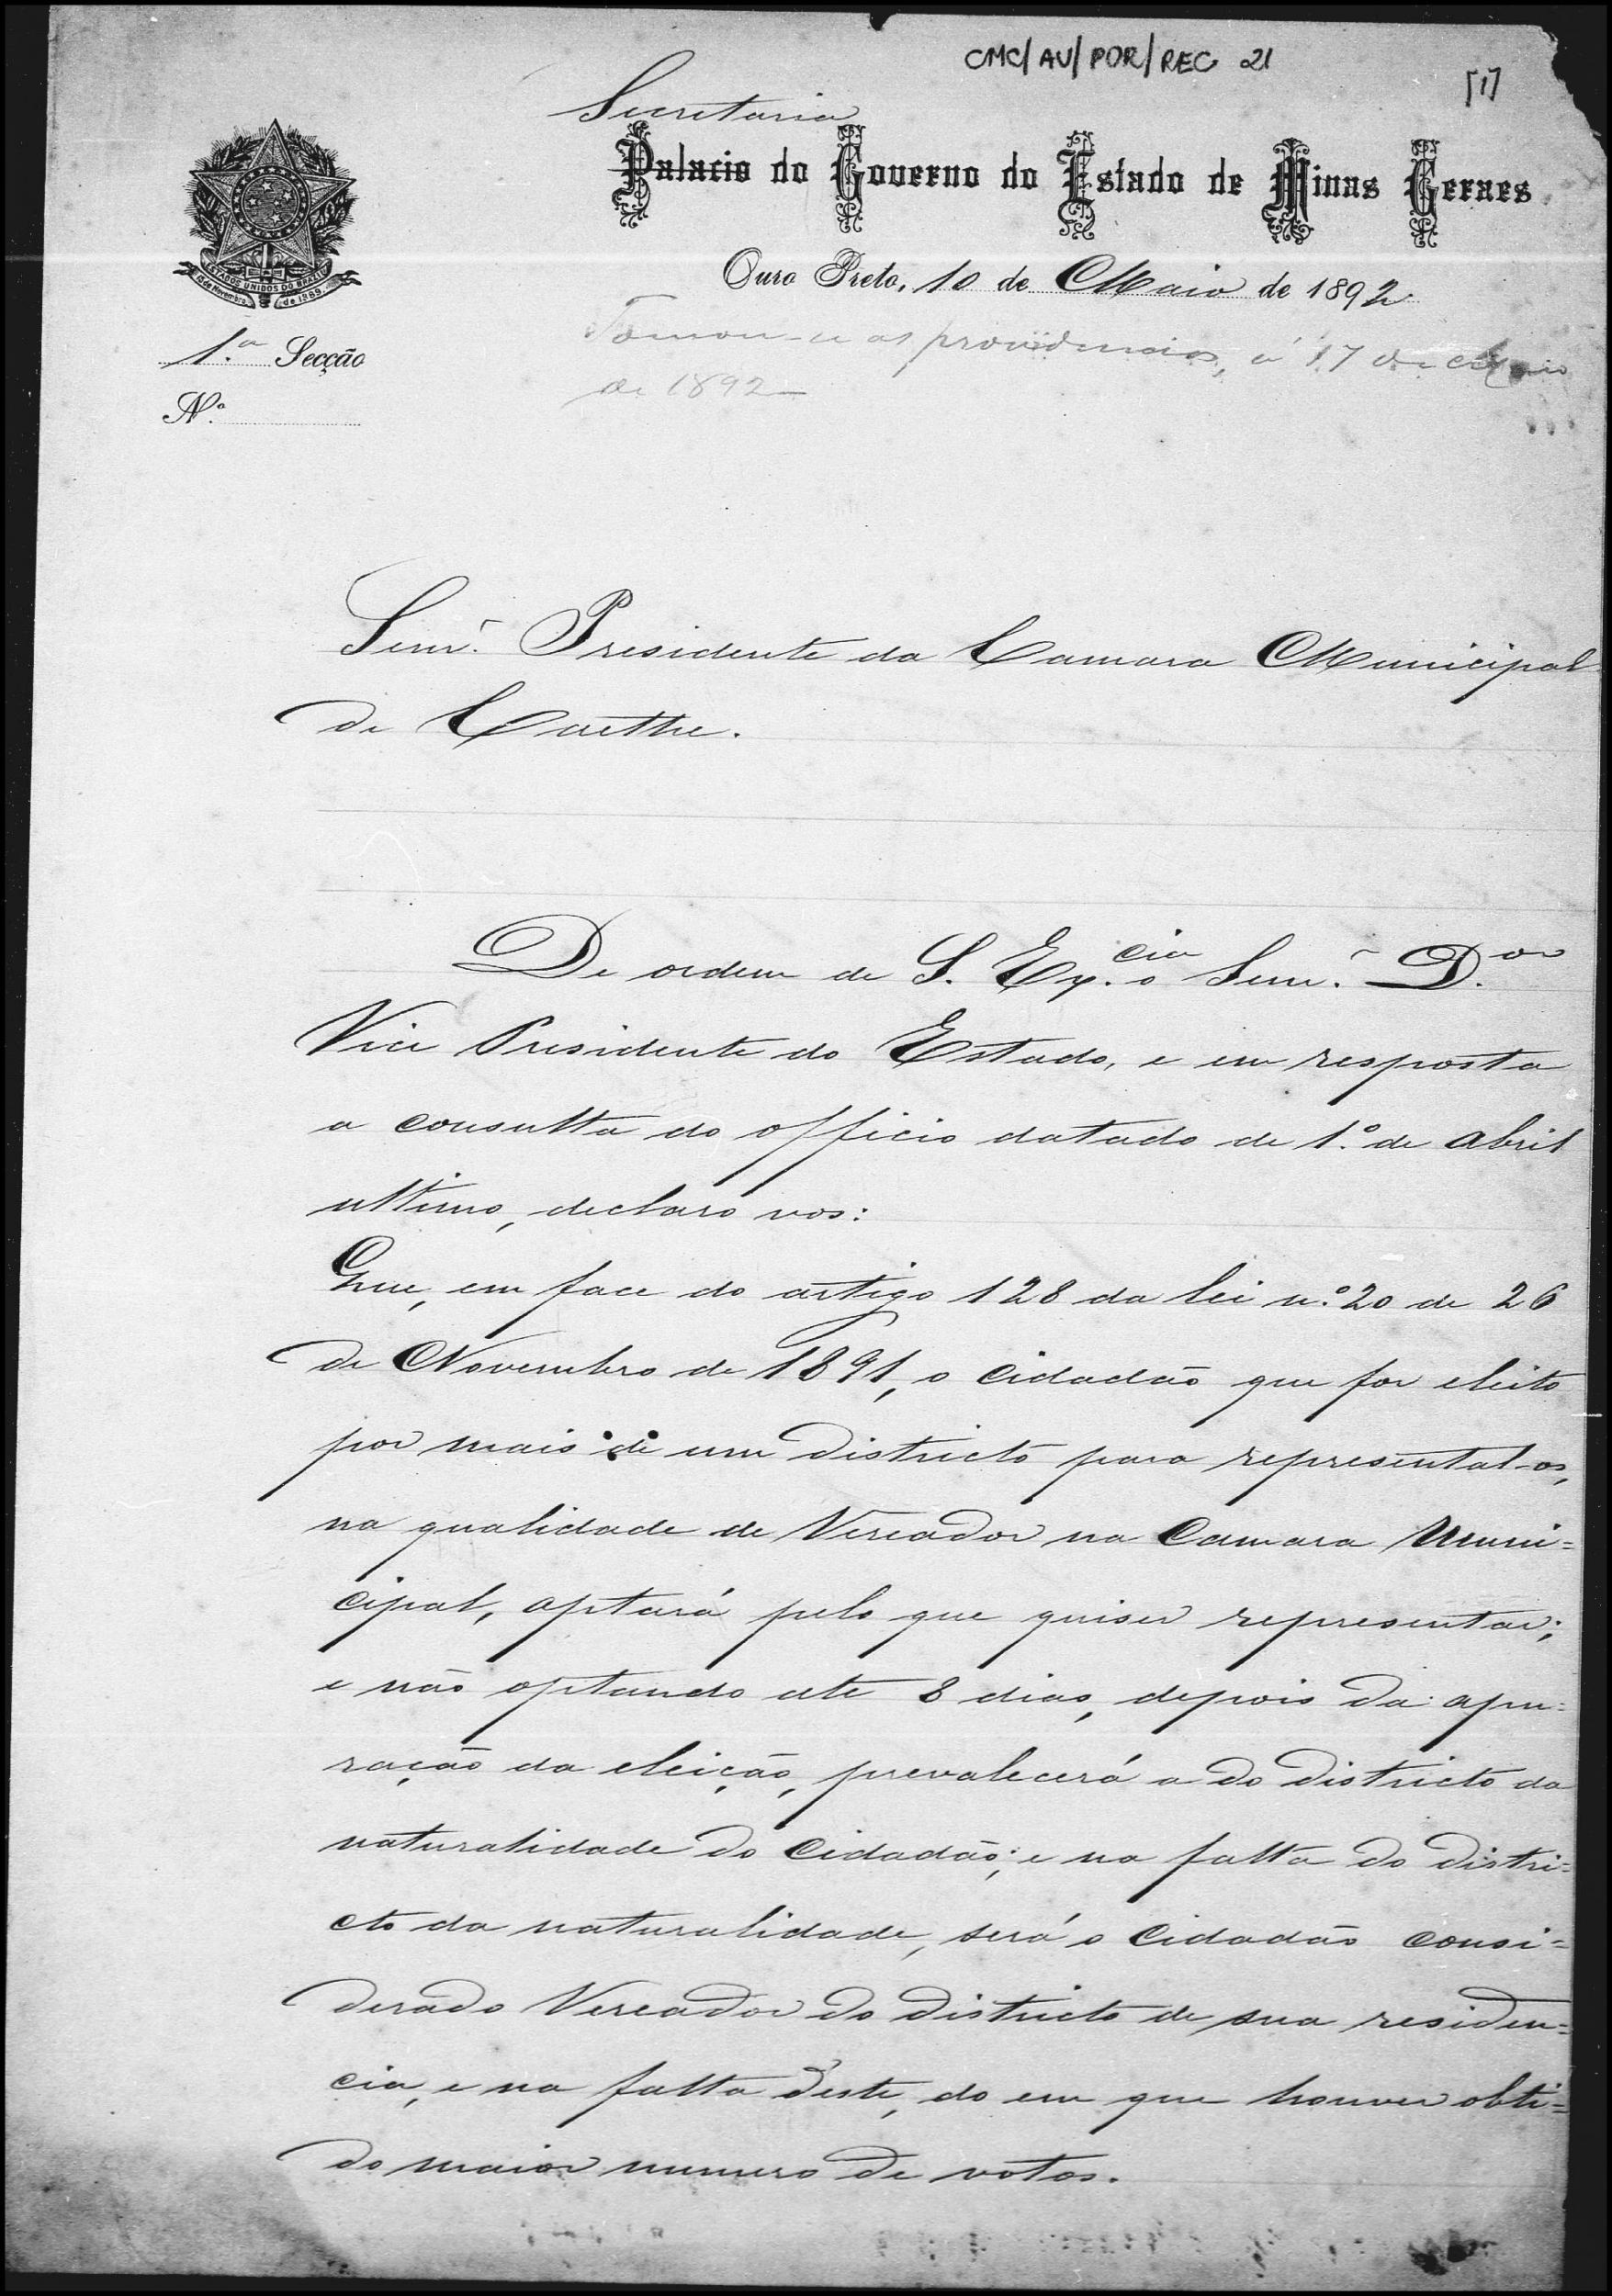 CMC/AV/POR/REC 21
[1]
Secretaria
Palacio do Governo do Estado de Minas Geraes
ESTADOS UNIDOS DO BRAZIL
15 de Novembro de 1889.
Ouro Preto, 10 de Maio de 1892
1.ª Secção
Tomou-se as providencias, á 17 de Maio
de 1892
N.º
Senr. Presidente da Camara Municipal
de Caethe.
De ordem de S. Ex.cia o Senr. D.or
Vice Presidente do Estado, e em resposta
a consulta do officio datado de 1.º de Abril
ultimo, declaro vos:
Que, em face do artigo 128 da lei n.º 20 de 26
de Novembro de 1891, o cidadão que for eleito
por mais de um districto para represental-os,
na qualidade de Vereador na Camara Muni=
cipal, optará pelo que quiser representar;
e não optando até 8 dias, depois da apu=
ração da eleição, prevalecerá a do districto da
naturalidade do cidadão; e na falta do distri=
cto da naturalidade, será o cidadão consi=
derado Vereador do districto de sua residen=
cia, e na falta deste, do em que houver obti=
do maior numero de votos.